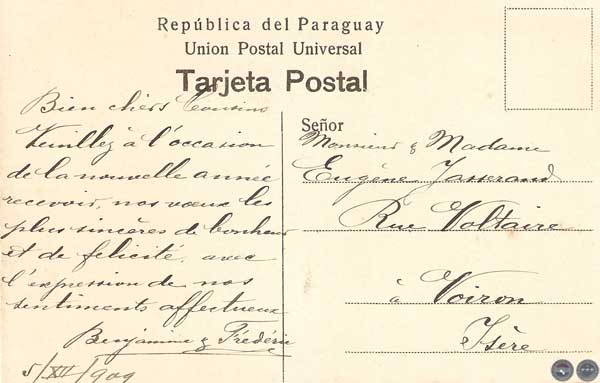 República del Paraguay
Union Postal Universal
Tarjeta Postal
Bien chers Cousins
Veuillez à l'occasion
de la nouvelle année
recevoir, nos vœux les
plus sincères de bonheur
et de felicité, avec
l'expression de nos
sentiments affectueux
Benjamine & Frédéric
5/XII/909
Señor
Monsieur & Madame
Eugène Jasserand
Rue Voltaire
à Voiron
Isère